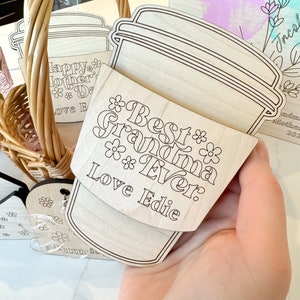 Happy
Mother's
Day
Love Edie
Best
Grandma
Ever.
Love Edie